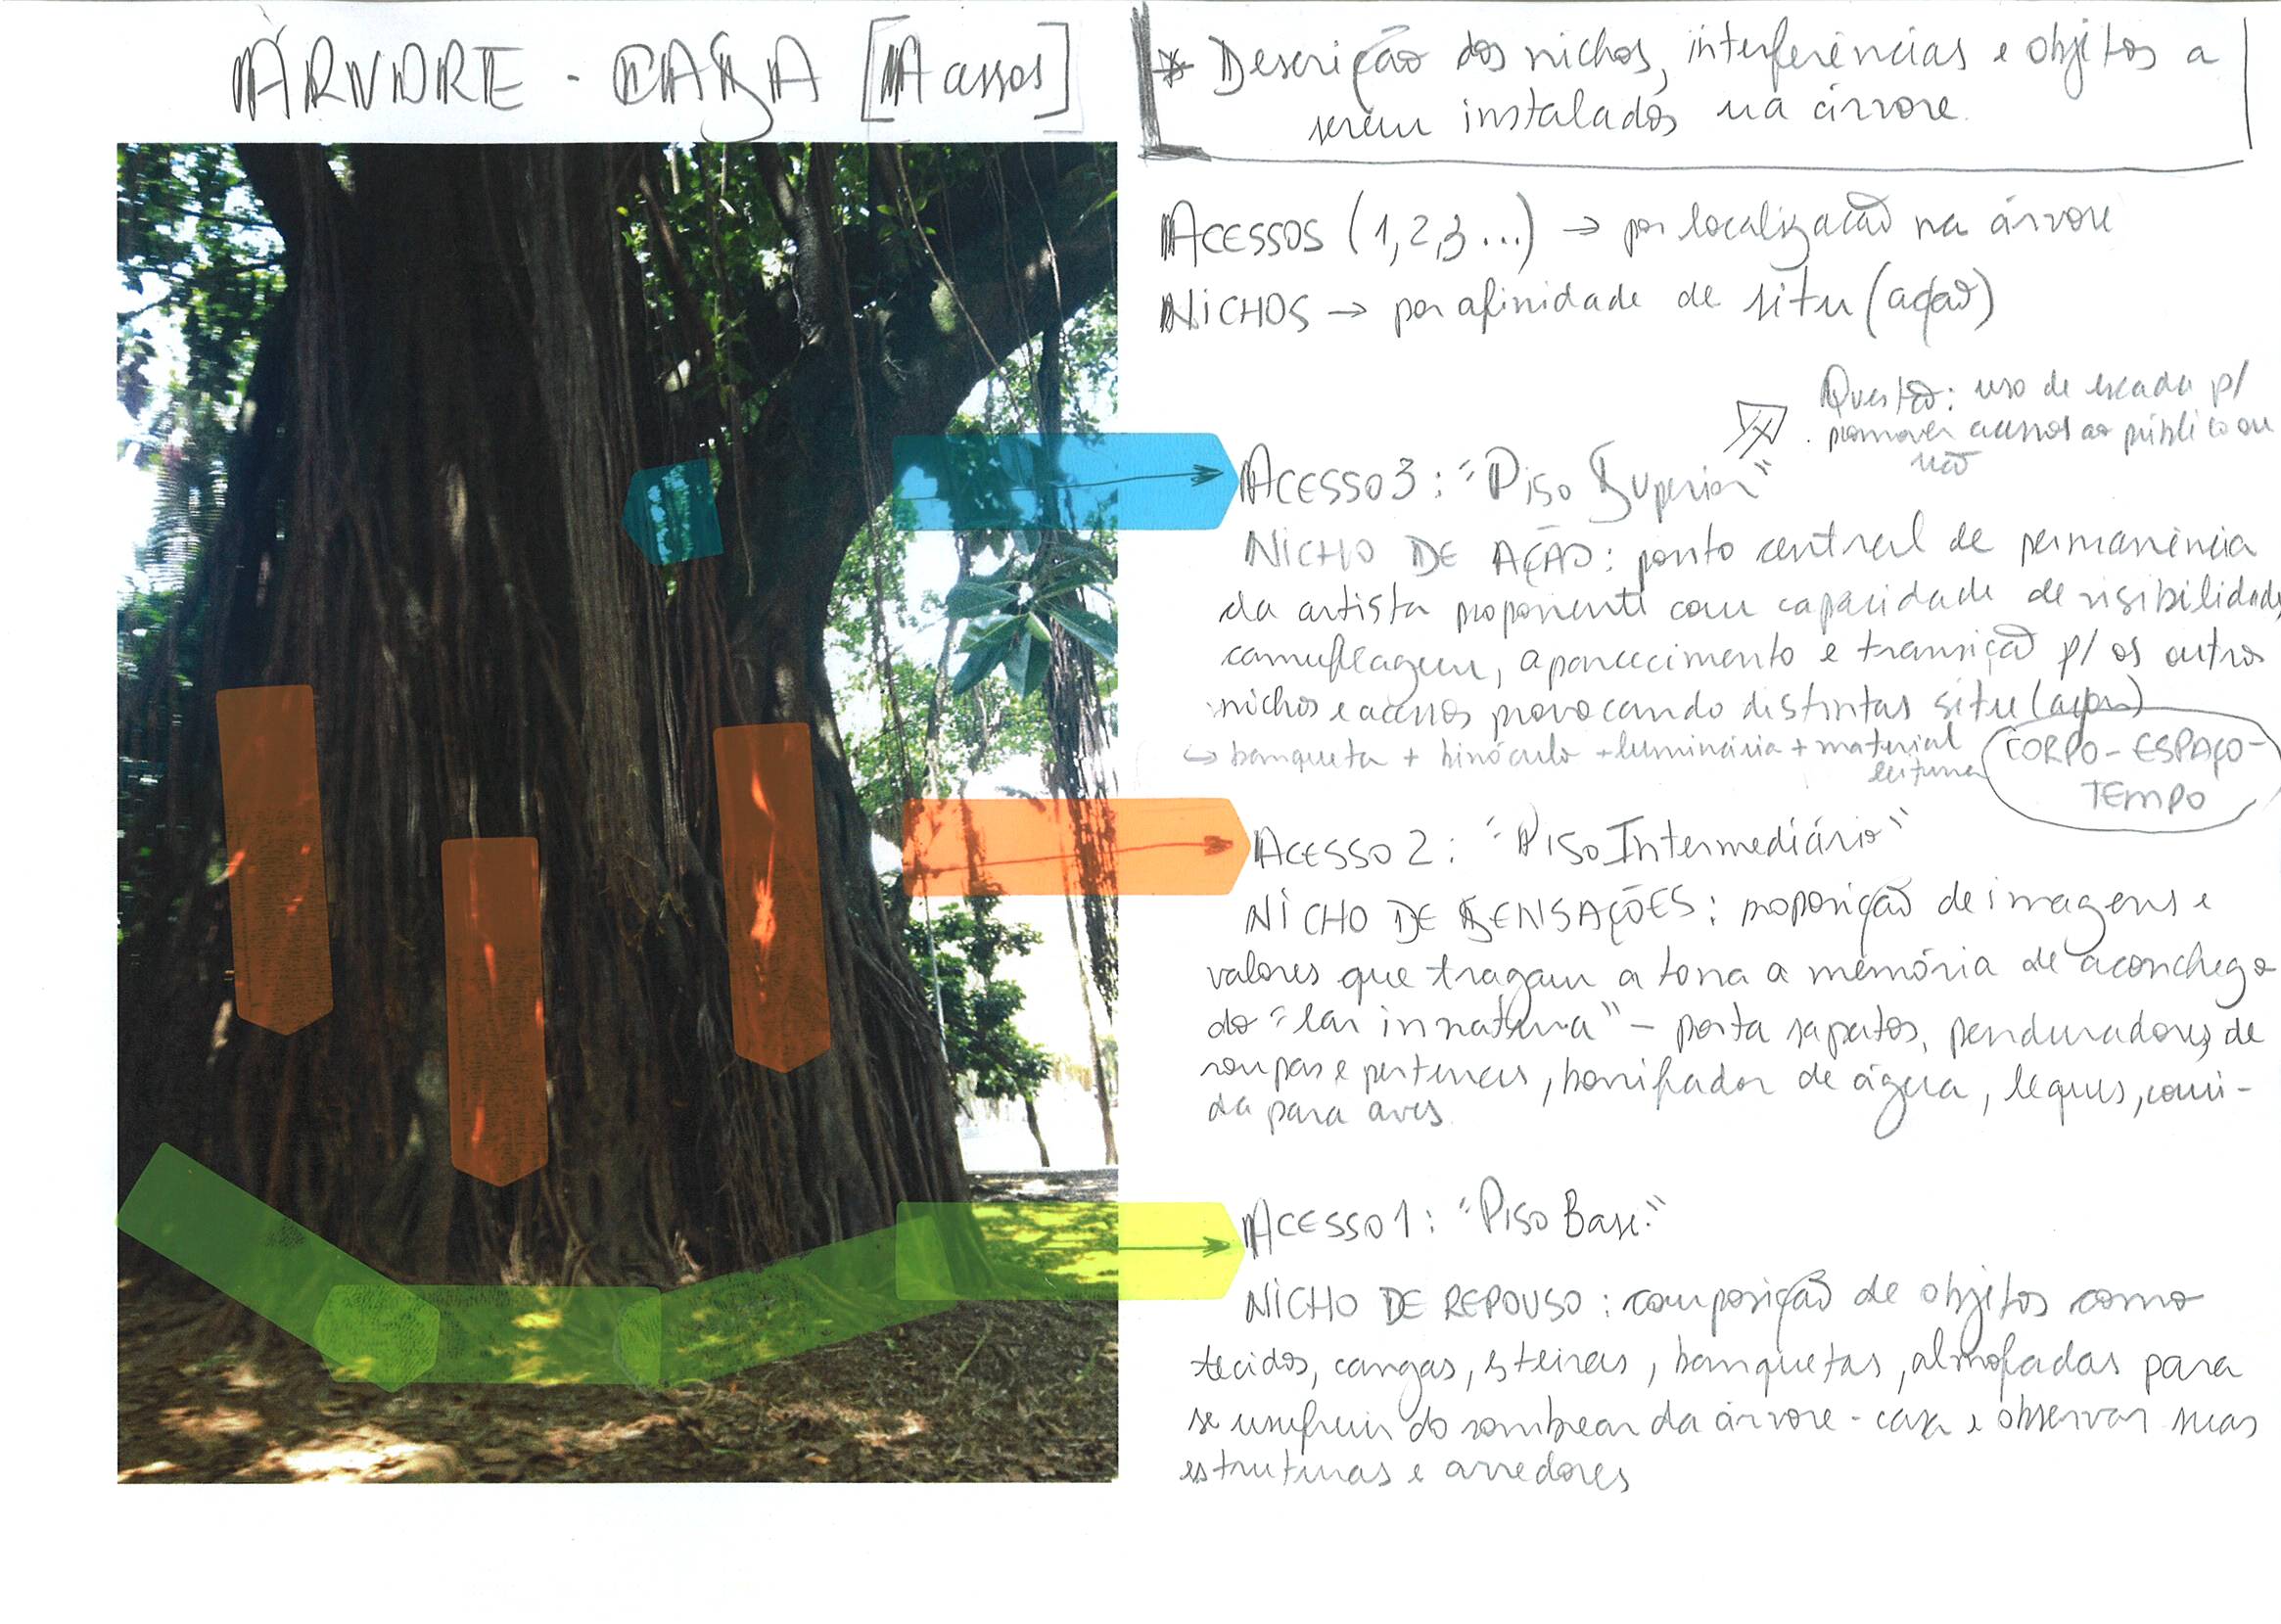 ÁRVORE - CASA [Acessos]
* Descrição dos nichos, interferências e objetos a
serem instalados na árvore.
ACESSOS (1,2,3...) → por localização na árvore
NICHOS → por afinidade de situ(ação)
Questão: uso de escada p/
promover acessos ao público ou
não
ACESSO 3: "Piso Superior"
NICHO DE AÇÃO: ponto central de permanência
da artista proponente com capacidade de visibilidade,
camuflagem, aparecimento e transição p/ os outros
nichos e acessos provocando distintas situ(ações)
↳ banqueta + binóculo + luminária + material
leitura
CORPO-ESPAÇO-
TEMPO
ACESSO 2: "Piso Intermediário"
NICHO DE SENSAÇÕES: proposição de imagens e
valores que tragam a tona a memória de aconchego
do "lar in natura" - porta sapatos, penduradores de
roupas e pertences, borrifador de água, leques, comi-
da para aves.
ACESSO 1: "Piso Base"
NICHO DE REPOUSO: composição de objetos como
tecidos, cangas, esteiras, banquetas, almofadas para
se usufruir do sombrear da árvore-casa e observar suas
estruturas e arredores